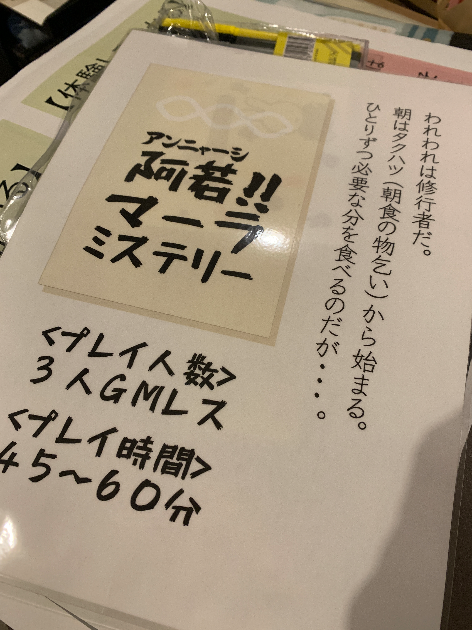 われわれは修行者だ。
朝はタクハツ（朝食の物乞い）から始まる。
ひとりずつ必要な分を食べるのだが・・・。
アンニャーシ
阿若!!
マーラ
ミステリー
<プレイ人数>
3人GMレス
<プレイ時間>
45～60分
【体験し
る】